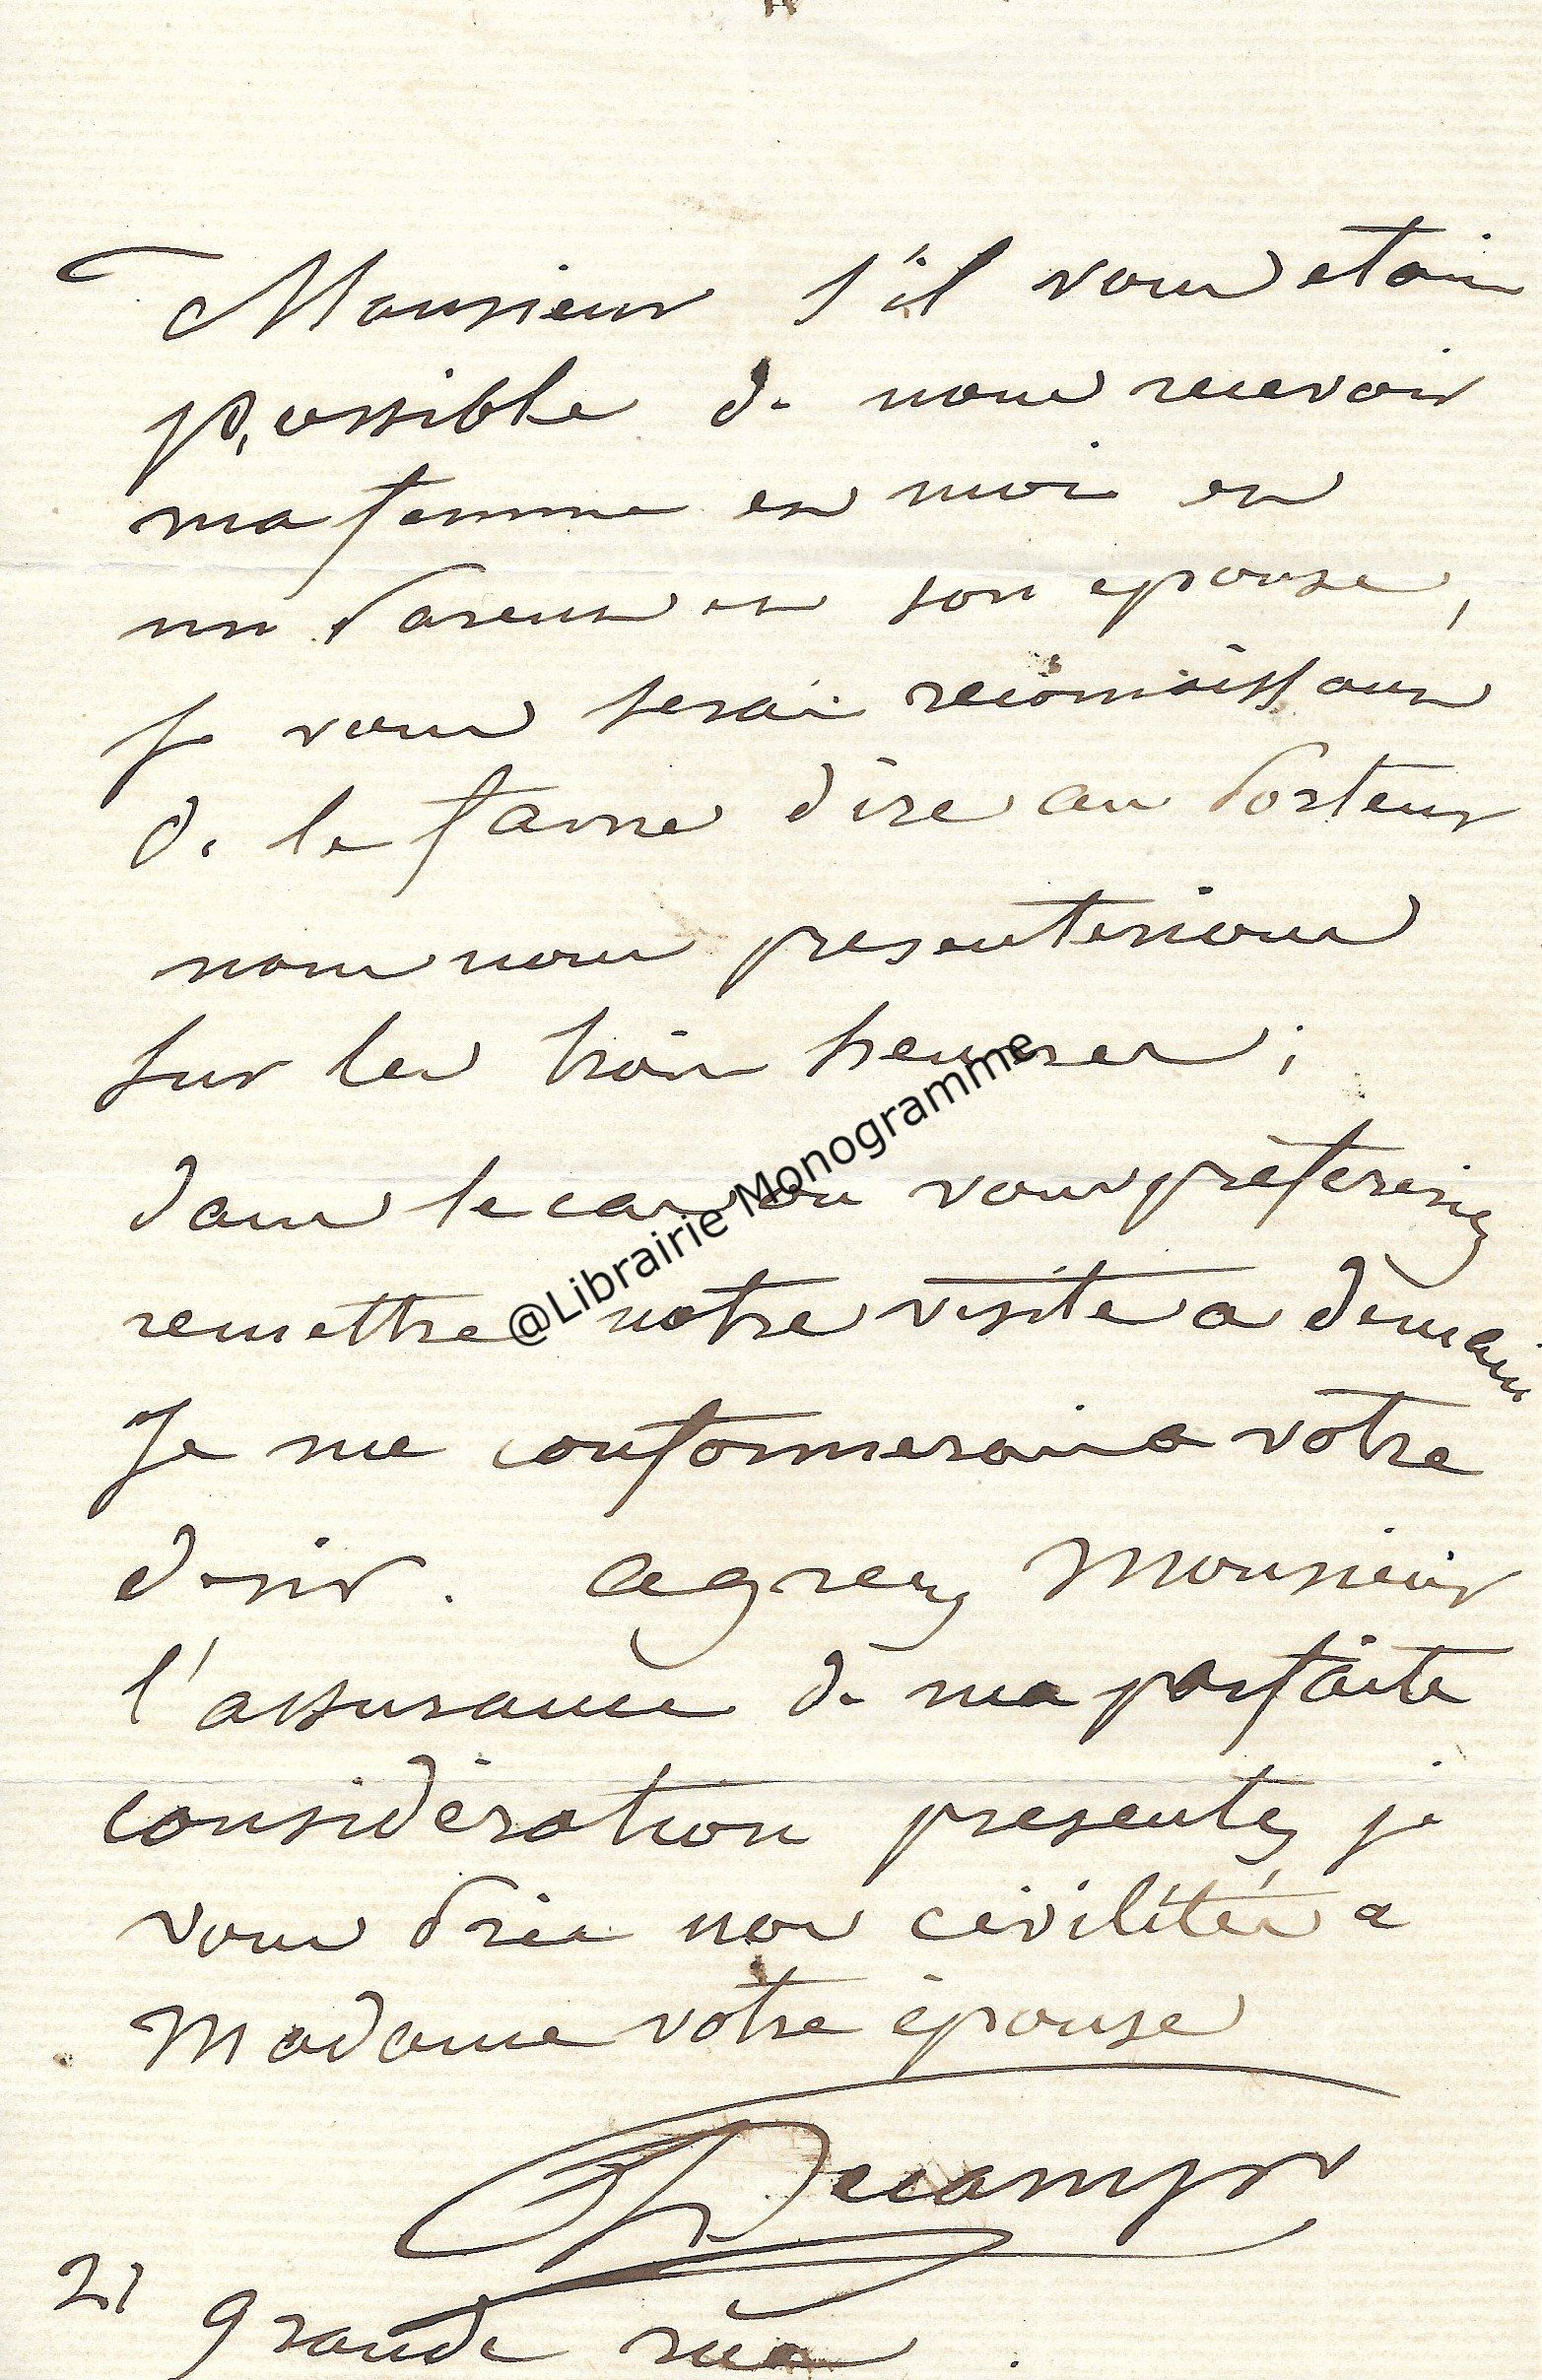 Monsieur s'il vous etais
possible de nous recevoir
ma femme et moi et
un Parent et son epouse,
je vous serai reconnaissant
de le faire dire au Porteur
nous nous presenterions
sur les trois heures ;
@Librairie Monogramme
dans le cas ou vous prèfereriez
remettre notre visite a demain
Je me conformerai a votre
desir. agrez Monsieur
l'assurance de ma parfaite
considèration presentez je
vous Prie nos civilités a
Madame votre èpouse
Decamps
21
grande rue.